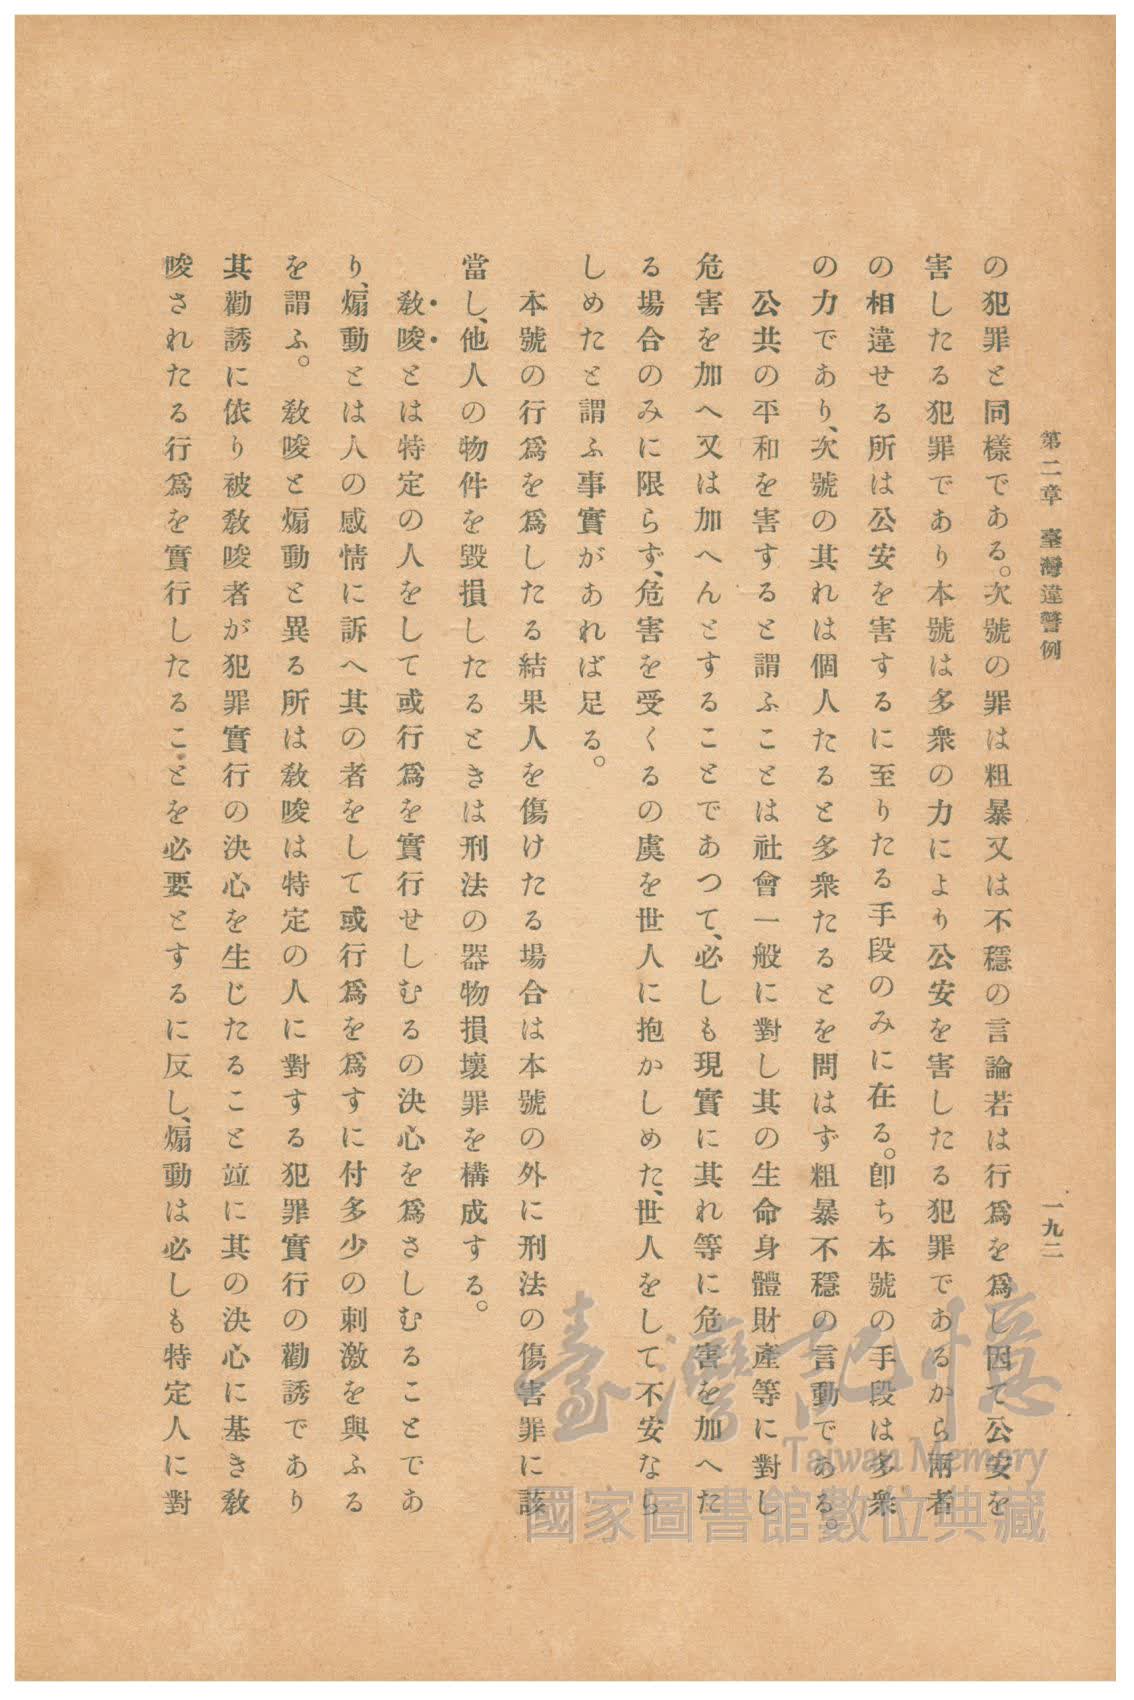 第二章 臺灣違警例
一九二
の犯罪と同樣である。次號の罪は粗暴又は不穩の言論若は行爲を爲し因て公安を
害したる犯罪であり本號は多衆の力により公安を害したる犯罪であるから兩者
の相違せる所は公安を害するに至りたる手段のみに在る。卽ち本號の手段は多衆
の力であり、次號の其れは個人たると多衆たるとを問はず粗暴不穩の言動である。
公共の平和を害すると謂ふことは社會一般に對し其の生命身體財產等に對し
危害を加へ又は加へんとすることであつて、必しも現實に其れ等に危害を加へた
る場合のみに限らず、危害を受くるの虞を世人に抱かしめた、世人をして不安なら
しめたと謂ふ事實があれば足る。
本號の行爲を爲したる結果人を傷けたる場合は本號の外に刑法の傷害罪に該
當し、他人の物件を毀損したるときは刑法の器物損壞罪を構成する。
敎唆とは特定の人をして或行爲を實行せしむるの決心を爲さしむることであ
り、煽動とは人の感情に訴へ其の者をして或行爲を爲すに付多少の刺激を與ふる
を謂ふ。敎唆と煽動と異る所は敎唆は特定の人に對する犯罪實行の勸誘であり
其勸誘に依り被敎唆者が犯罪實行の決心を生じたること竝に其の決心に基き敎
唆されたる行爲を實行したることを必要とするに反し、煽動は必しも特定人に對
臺灣記憶
Taiwan Memory
國家圖書館數位典藏